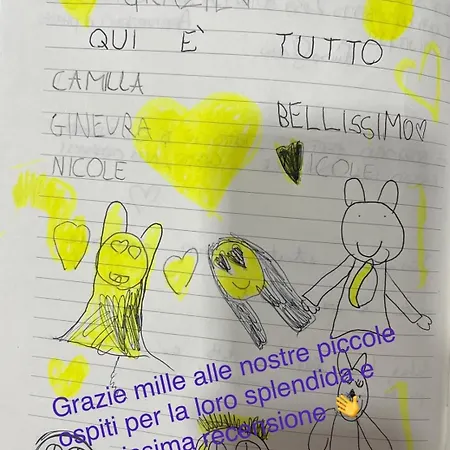 GRAZIE
QUI È TUTTO
CAMILLA
BELLISSIMO♡
GINEVRA
NICOLE
Grazie mille alle nostre piccole
ospiti per la loro splendida e
recensione